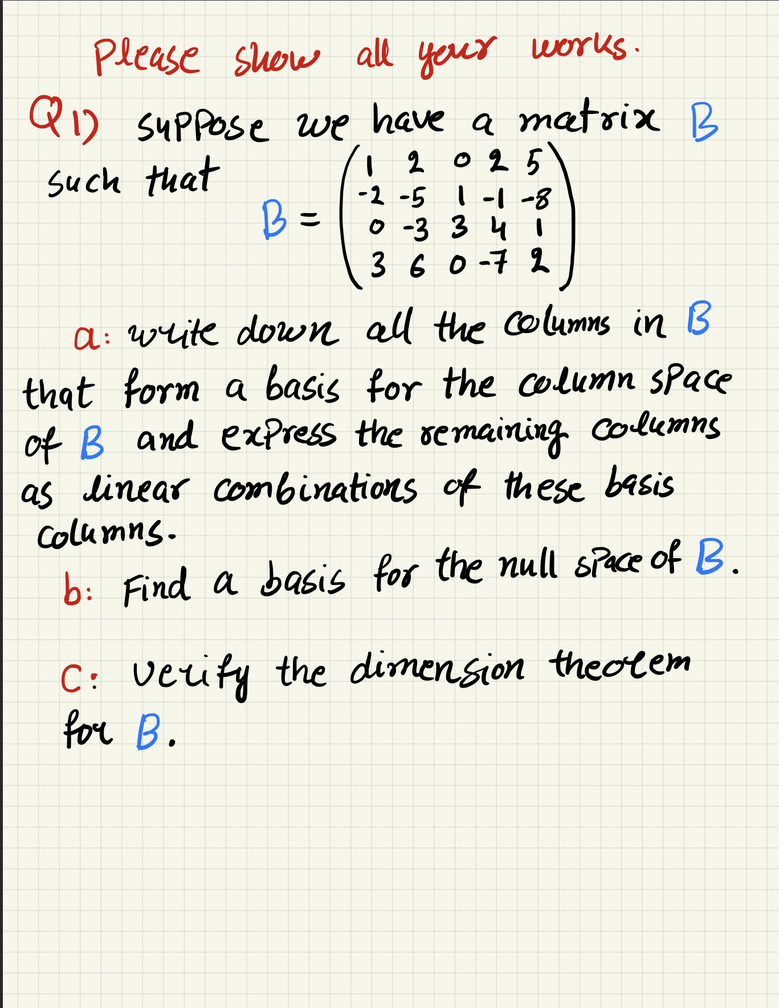 Please show all your works.
Q1) suppose we have a matrix B
such that
B = (1 2 0 2 5
-2 -5 1 -1 -8
0 -3 3 4 1
3 6 0 -7 2)
a: write down all the columns in B
that form a basis for the column space
of B and express the remaining columns
as linear combinations of these basis
columns.
b: Find a basis for the null space of B.
C: Verify the dimension theorem
for B.